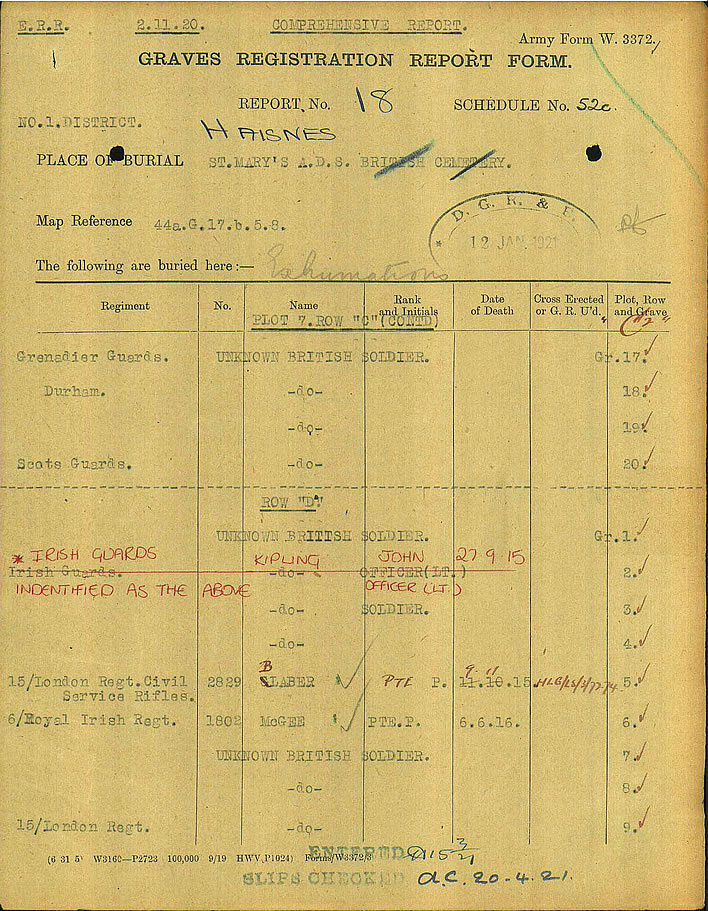 E.R.R. 2.11.20. COMPREHENSIVE REPORT.
Army Form W. 3372.
GRAVES REGISTRATION REPORT FORM.
REPORT No. 18 SCHEDULE No. 52c.
NO.1.DISTRICT.
HAISNES
PLACE OF BURIAL ST.MARY'S A.D.S. BRITISH CEMETERY.
D. G. R. & E.
Map Reference 44a.G.17.b.5.8.
* 12 JAN 1921
The following are buried here :— Exhumations
Regiment No. Name Rank and Initials Date of Death Cross Erected or G. R. U'd. Plot, Row and Grave
PLOT 7.ROW "C"(CONTD)
Grenadier Guards. UNKNOWN BRITISH SOLDIER. Gr.17.
Durham. -do- 18.
-do- 19.
Scots Guards. -do- 20.
ROW "D".
UNKNOWN BRITISH SOLDIER. Gr.1.
* IRISH GUARDS KIPLING JOHN 27 9 15
Irish Guards. -do- OFFICER(LT.) 2.
INDENTIFIED AS THE ABOVE OFFICER (LT.)
-do- SOLDIER. 3.
-do- 4.
B 9. 11
15/London Regt.Civil 2829 SLABER PTE P. 11.10.15. 5.
Service Rifles.
6/Royal Irish Regt. 1802 McGEE PTE.P. 6.6.16. 6.
UNKNOWN BRITISH SOLDIER. 7.
-do- 8.
15/London Regt. -do- 9.
(6 31 5) W3160—P2723 100,000 9/19 HWV(P1024) Forms/W3372/3
ENTERED
SLIPS CHECKED a.c. 20.4.21.